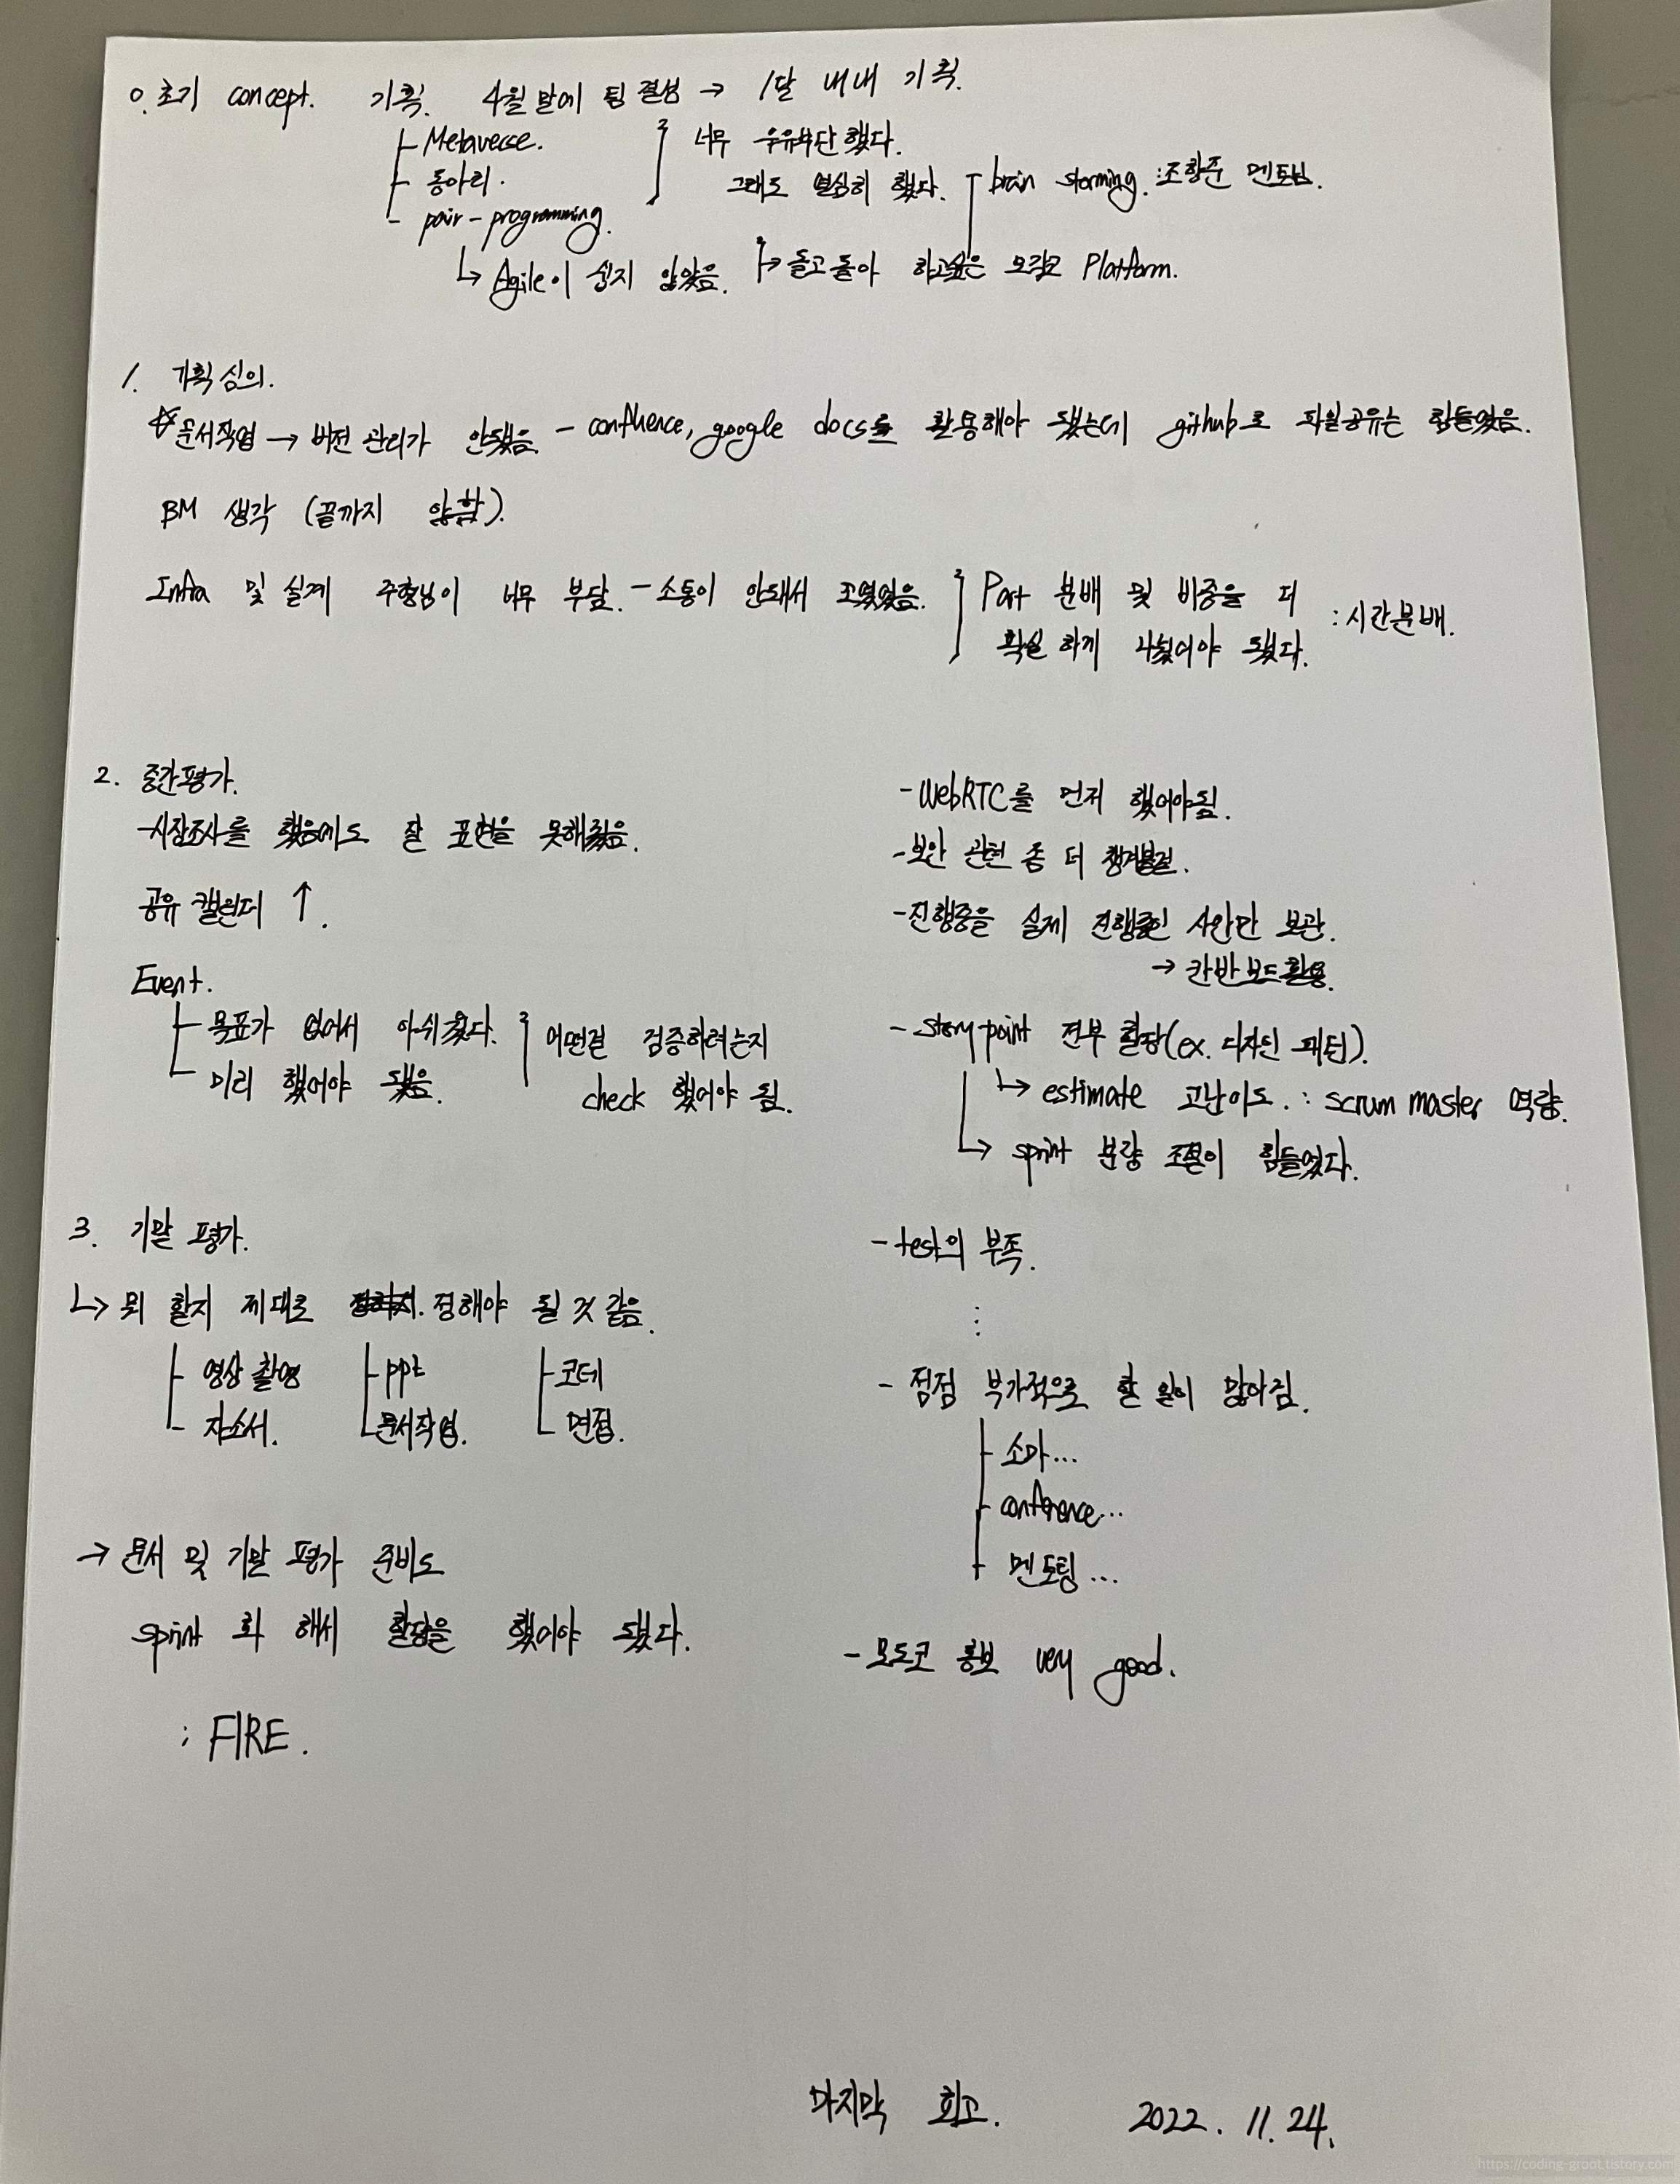 0. 초기 concept. 기획. 4월 말에 팀 결성 → 1달 내내 기획.
Metaverse.
동아리.
pair-programming.
너무 우유부단 했다.
그래도 열심히 했다.
brain storming. : 조항준 멘토님.
↳ Agile이 쉽지 않았음.
↳ 돌고 돌아 하고싶은 모각코 Platform.
1. 기획심의.
☆문서작업 → 버전 관리가 안됐음 - confluence, google docs를 활용해야 됐는데 github로 파일공유는 힘들었음.
BM 생각 (끝까지 안함).
Infra 및 설계 주형님이 너무 부담. - 소통이 안돼서 꼬였었음.
Part 분배 및 비중을 더
확실하게 나눴어야 됐다.
: 시간분배.
2. 중간평가.
-시장조사를 했음에도 잘 표현을 못해줬음.
공유 캘린더 ↑.
Event.
목표가 없어서 아쉬웠다.
미리 했어야 됐음.
어떤걸 검증하려는지
check 했어야 됨.
3. 기말 평가.
↳ 뭐 할지 제대로 정해야 될 것 같음.
영상 촬영
자소서.
ppt
문서작업.
코테
면접.
→ 문서 및 기말 평가 준비도
sprint 화 해서 할당을 했어야 됐다.
: FIRE.
- WebRTC를 먼저 했어야됨.
- 보안 관련 좀 더 챙겨볼걸.
- 진행중을 실제 진행중인 사안만 보관.
→ 칸반보드활용.
- story point 전부 할당(ex. 디자인 패턴).
↳ estimate 고난이도. : scrum master 역량.
↳ sprint 분량 조절이 힘들었다.
- test의 부족.
⋮
- 점점 부가적으로 할 일이 많아짐.
소마...
conference...
멘토링...
- 모도코 홍보 very good.
마지막 회고. 2022. 11. 24.
https://coding-groot.tistory.com